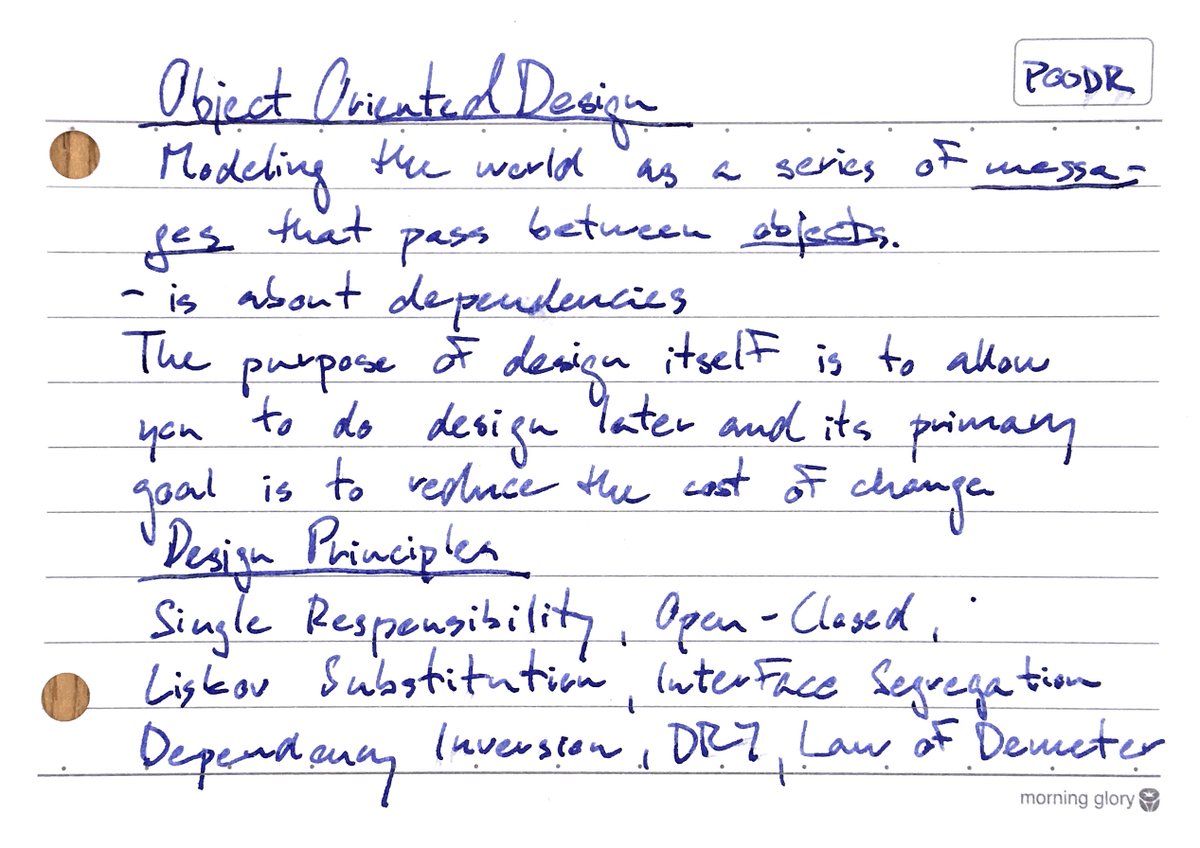 POODR
Object Oriented Design
Modeling the world as a series of messa-
ges that pass between objects.
- is about dependencies
The purpose of design itself is to allow
you to do design later and its primary
goal is to reduce the cost of change
Design Principles
Single Responsibility, Open-Closed,
Liskov Substitution, Interface Segregation
Dependency Inversion, DRY, Law of Demeter
morning glory